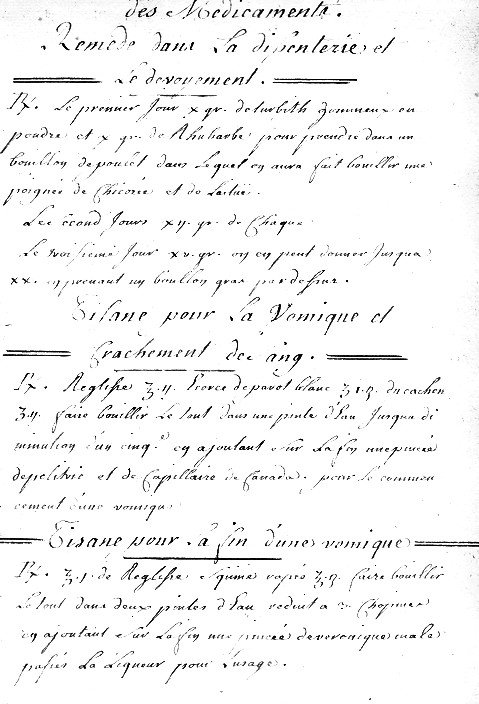 des Médicaments.
Remede dans La dissenterie et
Le devoyement.
Rx. Le premier Jour x gr. de turbith gommeux en
poudre et x gr. de Rhubarbe pour prendre dans un
bouillon de poulet dans Lequel on aura fait bouillir une
poignée de Chicorée et de Laitue.
Le second Jours xii. gr. de Chaque
Le troisieme Jour xv. gr. on en peut donner Jusqua
xx. en prenant un bouillon gras par dessus.
Tisane pour La Vomique et
Crachement de sang.
Rx. Reglisse ʒ.ij. Ecorce de pavot blanc ʒ.1.
ʒ.ij. faire bouillir Le tout dans une pinte d'Eau Jusqua di
minution d'un cinq.e en ajoutant sur La fin une pincée
de et de Capillaire de Canada, pour Le commen
cement d'une vomique
Tisane pour La fin d'une vomique
Rx. ʒ.1. de Reglisse rapée faire bouillir
Le tout dans deux pintes d'Eau reduit a 3 Chopines
en ajoutant sur La fin une pincée de veronique male
passés La Liqueur pour L'usage.